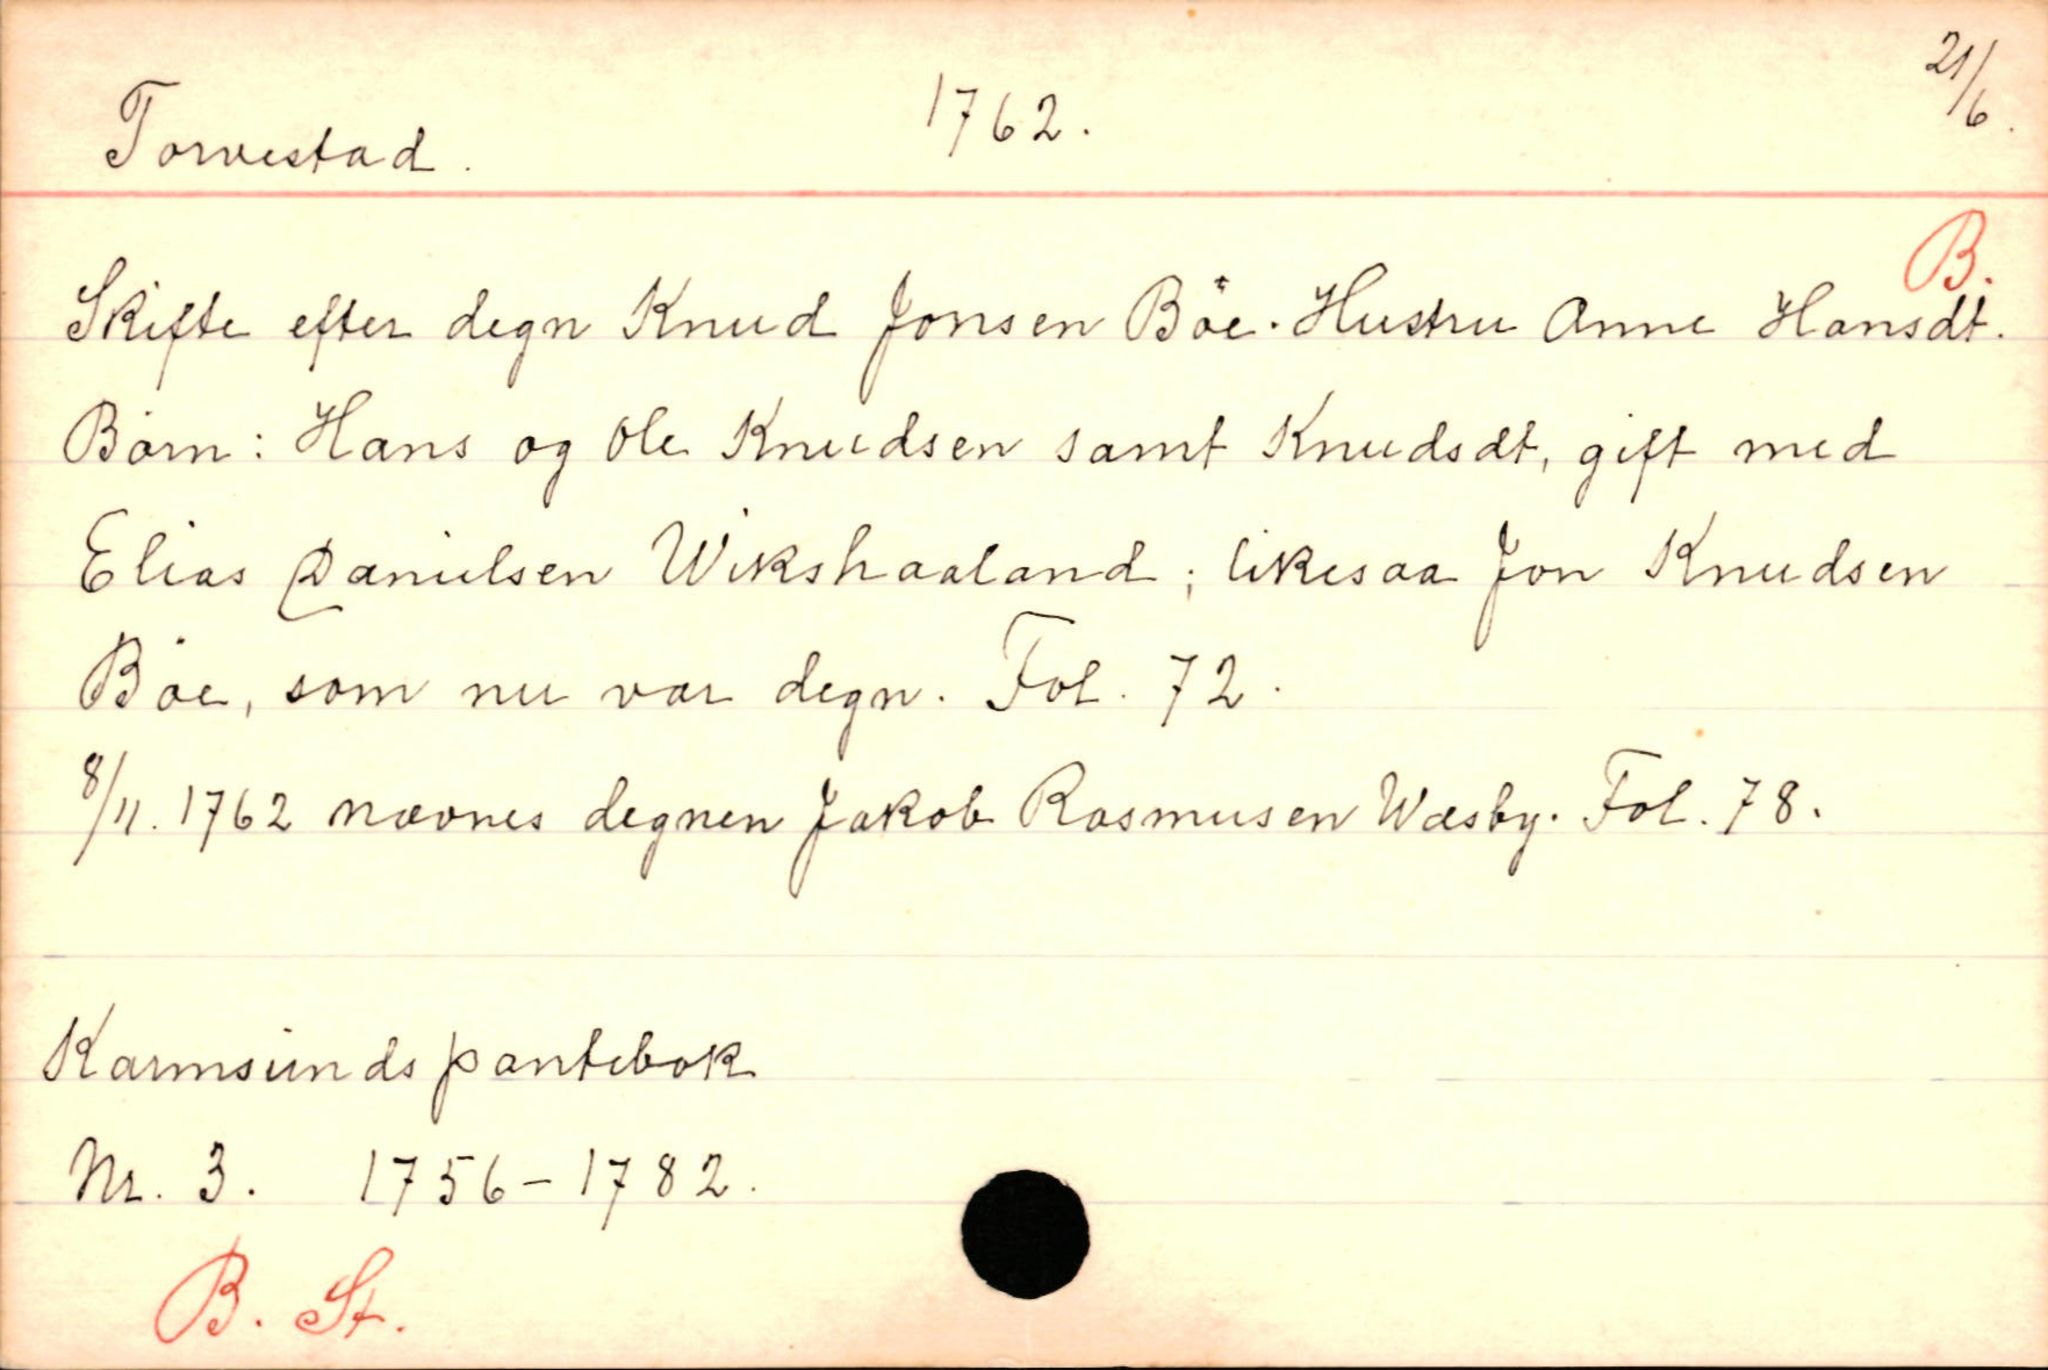 Torvestad. 1762. 21/6.
B.
Skifte efter degn Knud Jonsen Böe. Hustru Anne Hansdt.
Börn: Hans og Ole Knudsen samt Knudsdt, gift med
Elias Danielsen Wikshaaland; likesaa Jon Knudsen
Böe, som nu var degn. Fol. 72.
8/11. 1762 nævnes degnen Jakob Rasmusen Wæsby. Fol. 78.
Karmsunds pantebok
Nr. 3. 1756-1782.
B. St.